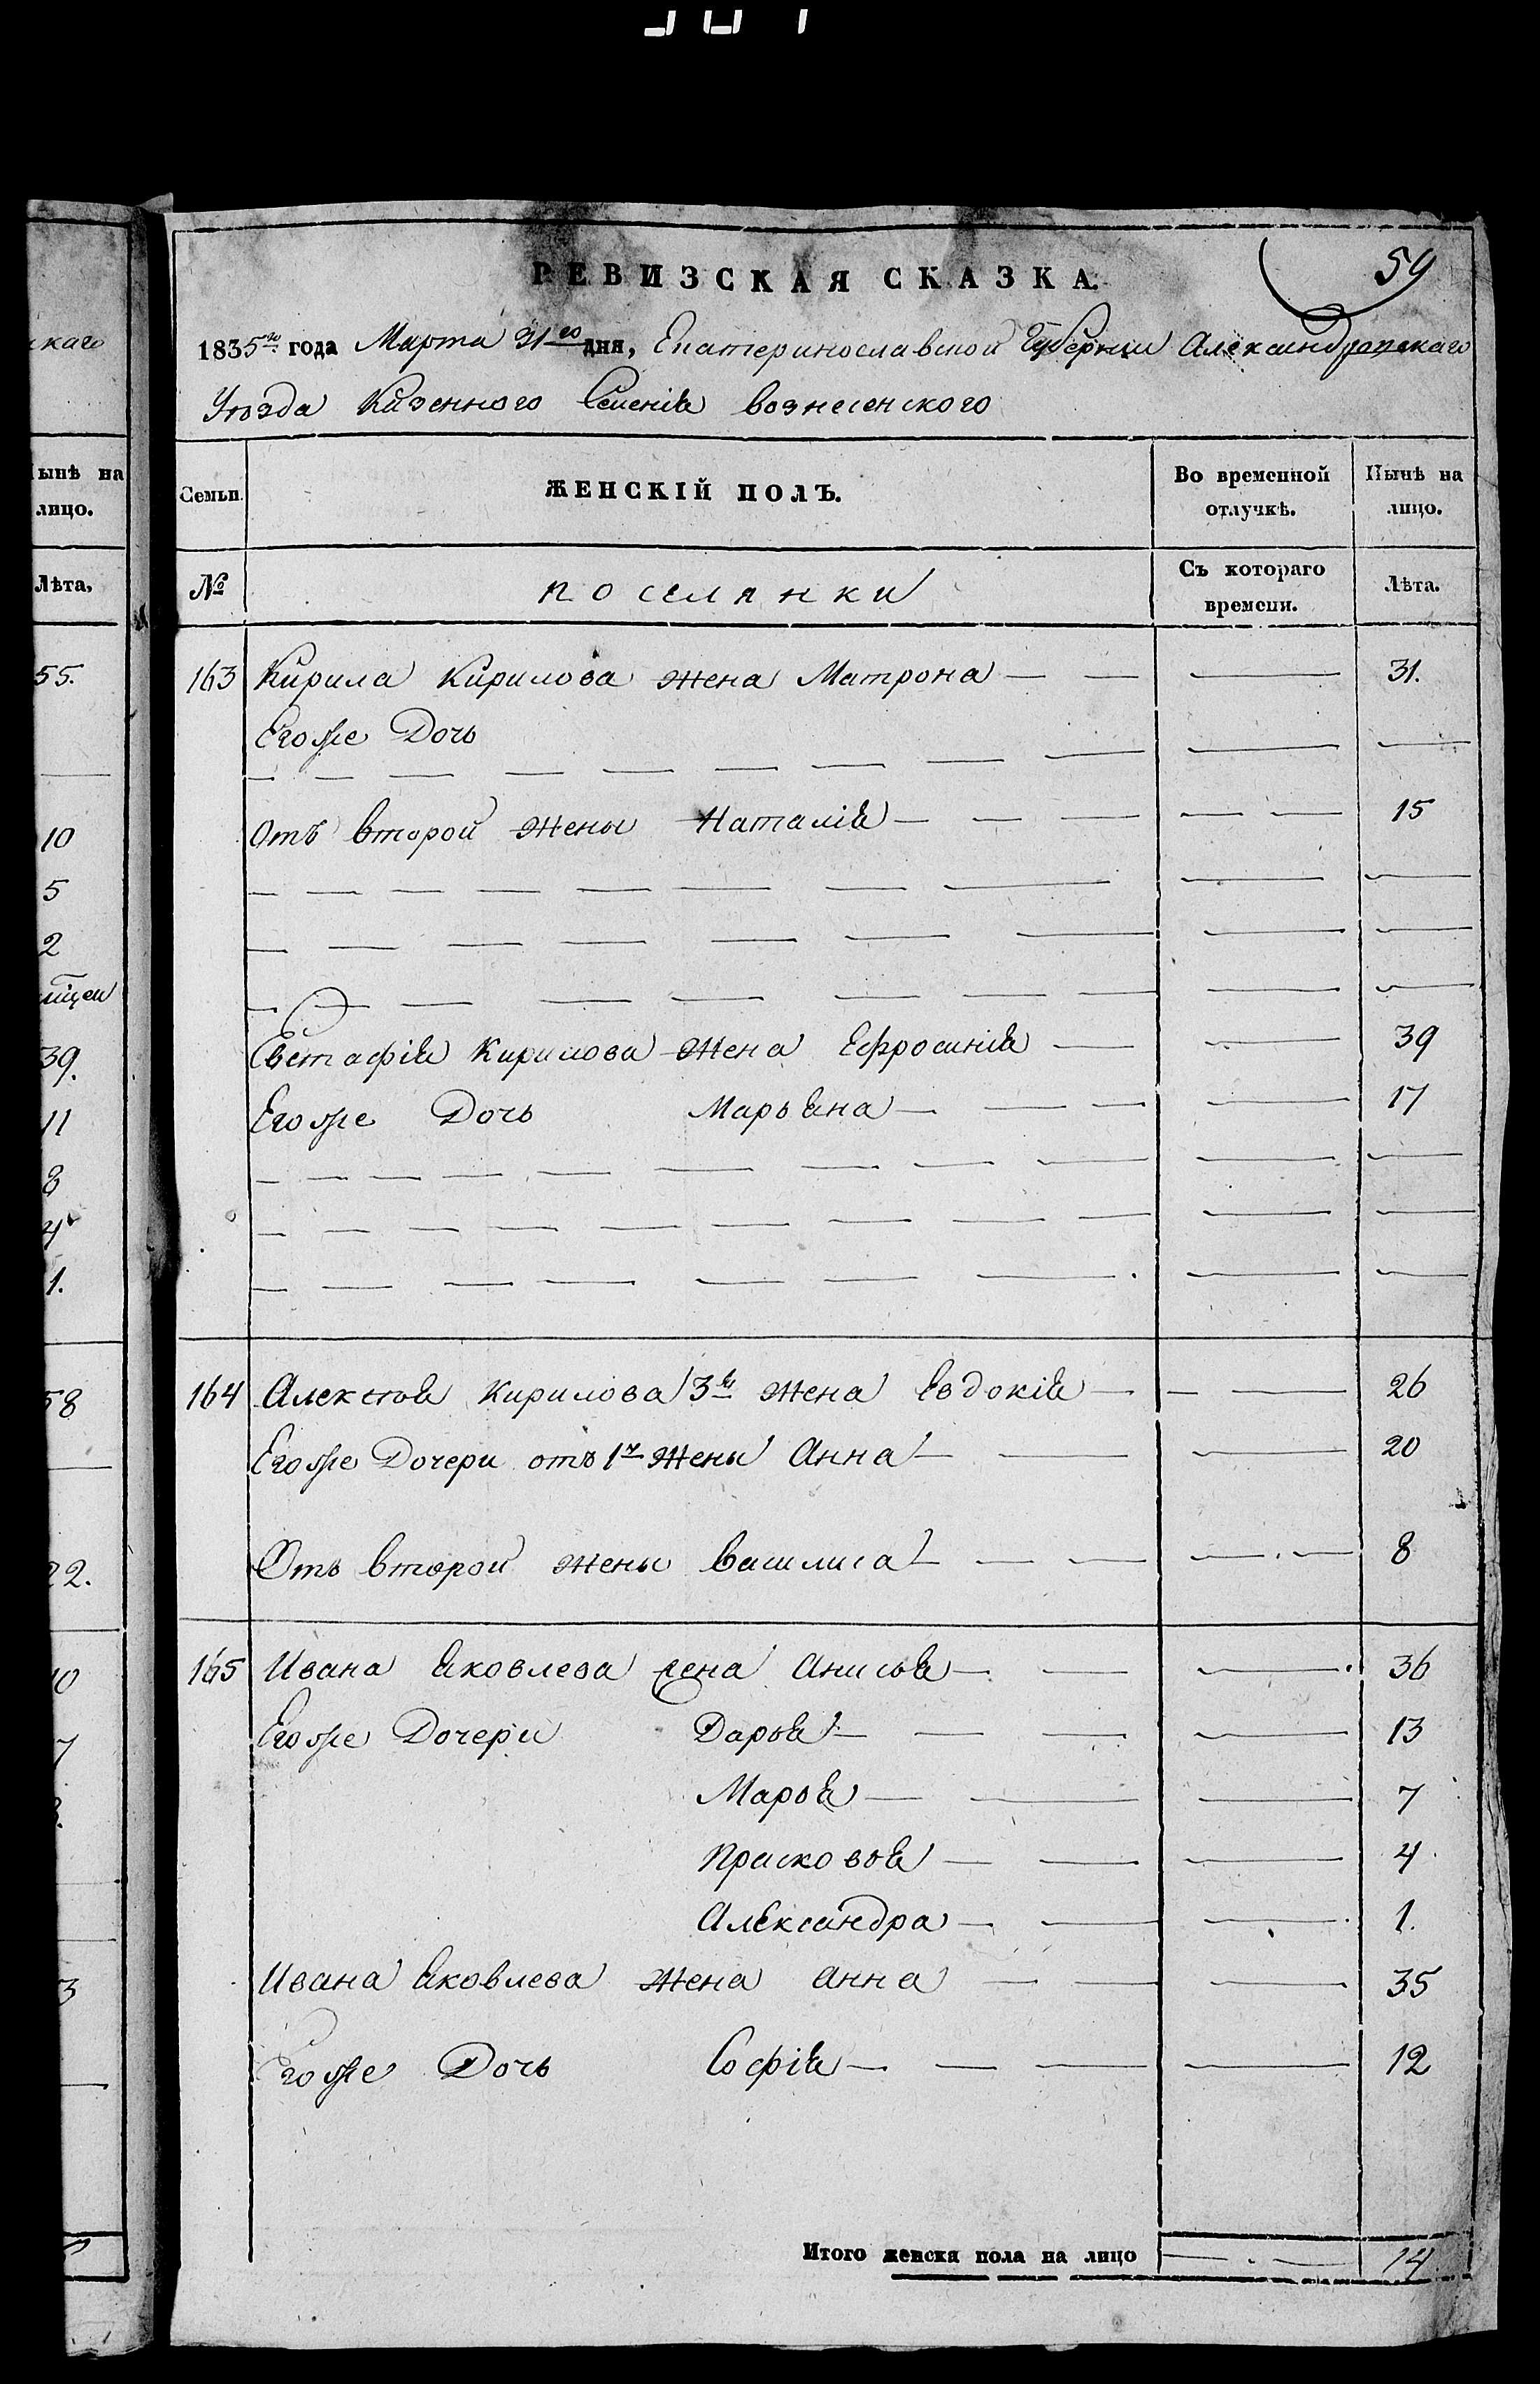 59
РЕВИЗСКАЯ СКАЗКА.
1835го года Марта 31го дня, Екатеринославской Губернии Александровскаго
Уѣзда Казенного Селенія Вознесенского
Семьи. ЖЕНСКІЙ ПОЛЪ. Во временной отлучкѣ. Нынѣ на лицо.
№ поселянки Съ котораго времени. Лѣта.
163 Кирила Кирилова жена Матрона 31.
Егоже Дочь
Отъ второй жены Наталія 15
Евстафія Кирилова жена Ефросинія 39
Егоже Дочь Марьяна 17
164 Алексѣя Кирилова 3я жена Евдокія 26
Егоже Дочери отъ 1й жены Анна 20
Отъ второй жены Василиса 8
165 Ивана Яковлева жена Анисья 36
Егоже Дочери Дарья 13
Марья 7
Прасковья 4
Александра 1.
Ивана Яковлева жена Анна 35
Егоже Дочь Софія 12
Итого женска пола на лицо 14
скаго
Нынѣ на
лицо.
Лѣта.
55.
10
5
2
39.
11
8
4
1.
58
22.
10
7
3